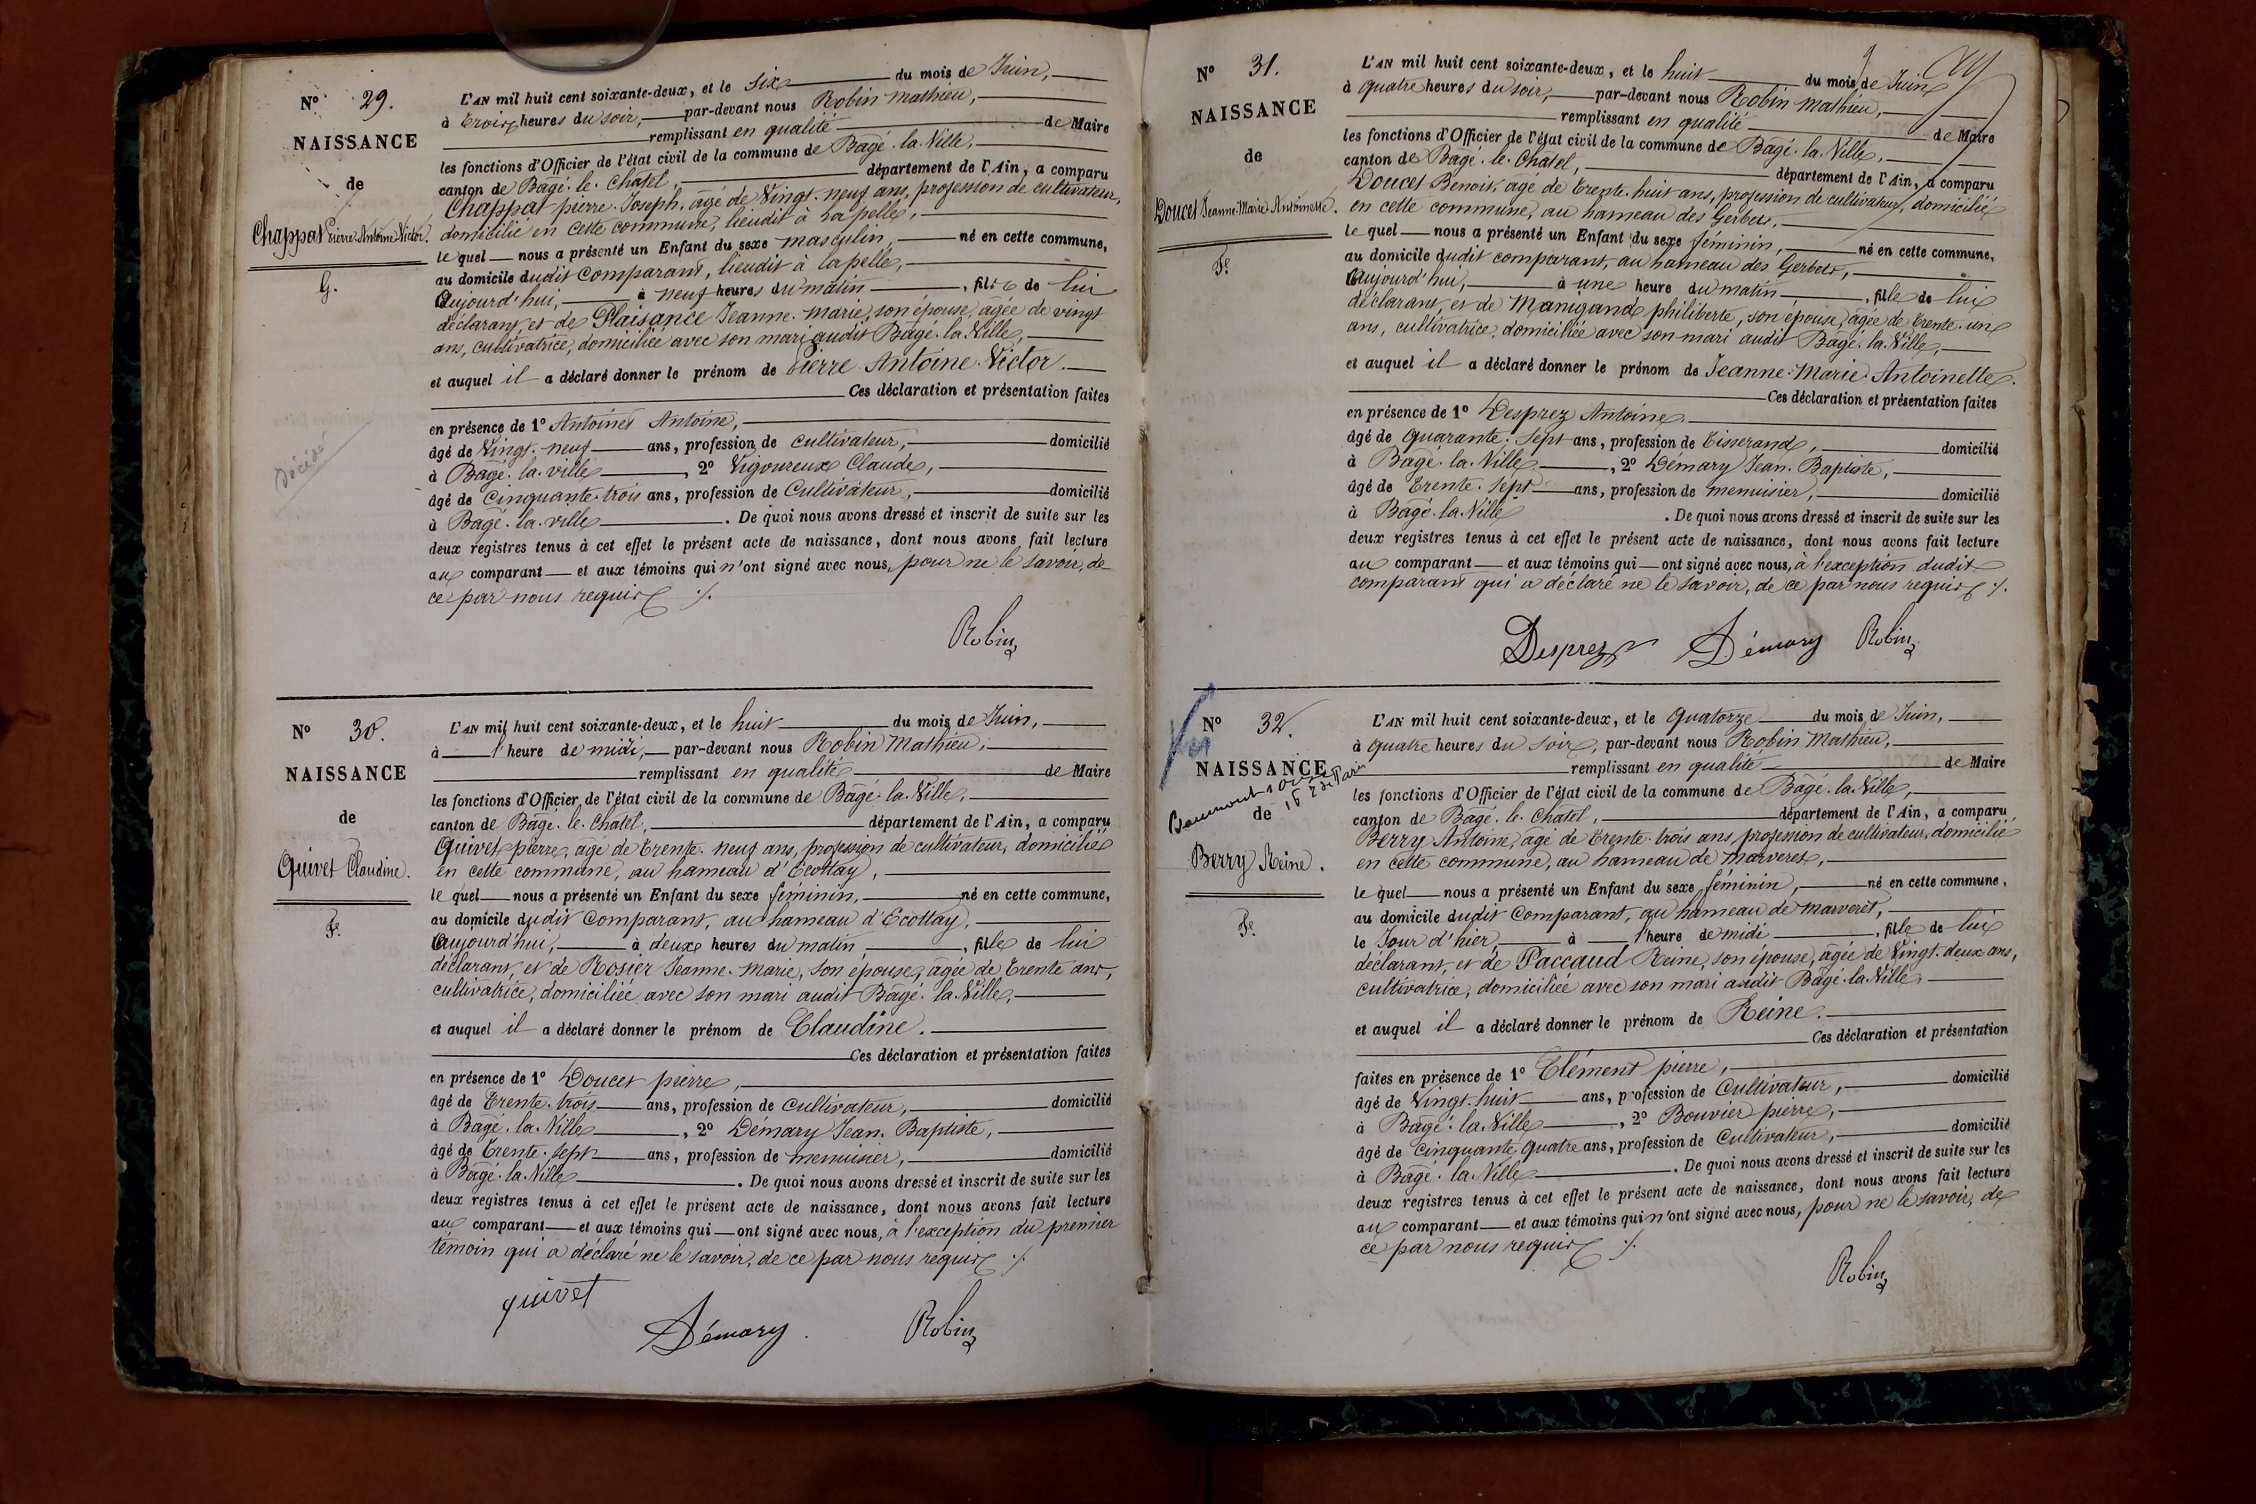 N° 29.
NAISSANCE
de
Chappat Pierre Antoine Victor.
G.
Décédé
L'AN mil huit cent soixante-deux, et le six du mois de Juin,
à trois heures du soir, par-devant nous Robin Mathieu,
remplissant en qualité de Maire
les fonctions d'Officier de l'état civil de la commune de Bâgé-la-Ville,
canton de Bâgé-le-Chatel, département de l'Ain, a comparu
Chappat pierre-Joseph, âgé de Vingt-neuf ans, profession de cultivateur,
domicilié en cette commune, lieudit à Lapelle,
le quel nous a présenté un Enfant du sexe masculin, né en cette commune,
au domicile dudit comparant, lieudit à Lapelle,
Aujourd'hui, à neuf heures du matin, fils de lui
déclarant, et de Plaisance Jeanne-Marie, son épouse, âgée de vingt
ans, cultivatrice, domiciliée avec son mari audit Bâgé-la-Ville,
et auquel il a déclaré donner le prénom de Pierre Antoine Victor.
Ces déclaration et présentation faites
en présence de 1° Antoinet Antoine,
âgé de Vingt-neuf ans, profession de cultivateur, domicilié
à Bâgé-la-ville, 2° Vigoureux Claude,
âgé de Cinquante-trois ans, profession de Cultivateur, domicilié
à Bâgé-la-ville. De quoi nous avons dressé et inscrit de suite sur les
deux registres tenus à cet effet le présent acte de naissance, dont nous avons fait lecture
au comparant et aux témoins qui n'ont signé avec nous, pour ne le savoir, de
ce par nous requis ./.
Robin
N° 30.
NAISSANCE
de
Quivet Claudine.
Fe.
L'AN mil huit cent soixante-deux, et le huit du mois de Juin,
à l'heure de midi, par-devant nous Robin Mathieu,
remplissant en qualité de Maire
les fonctions d'Officier de l'état civil de la commune de Bâgé-la-Ville,
canton de Bâgé-le-Chatel, département de l'Ain, a comparu
Quivet pierre, âgé de Trente-neuf ans, profession de cultivateur, domicilié
en cette commune, au hameau d'Ecottay,
le quel nous a présenté un Enfant du sexe féminin, né en cette commune,
au domicile dudit Comparant, au hameau d'Ecottay,
Aujourd'hui, à deux heures du matin, fille de lui
déclarant, et de Rosier Jeanne-Marie, son épouse, âgée de trente ans,
cultivatrice, domiciliée avec son mari audit Bâgé-la-Ville,
et auquel il a déclaré donner le prénom de Claudine.
Ces déclaration et présentation faites
en présence de 1° Doucet pierre,
âgé de Trente-trois ans, profession de cultivateur, domicilié
à Bâgé-la-Ville, 2° Démary Jean-Baptiste,
âgé de Trente-sept ans, profession de menuisier, domicilié
à Bâgé-la-Ville. De quoi nous avons dressé et inscrit de suite sur les
deux registres tenus à cet effet le présent acte de naissance, dont nous avons fait lecture
au comparant et aux témoins qui ont signé avec nous, à l'exception du premier
témoin qui a déclaré ne le savoir, de ce par nous requis ./.
quivet Démary Robin
N° 31.
NAISSANCE
de
Doucet Jeanne-Marie Antoinette.
Fe.
L'AN mil huit cent soixante-deux, et le huit du mois de Juin
à quatre heures du soir, par-devant nous Robin Mathieu,
remplissant en qualité de Maire
les fonctions d'Officier de l'état civil de la commune de Bâgé-la-Ville,
canton de Bâgé-le-Chatel, département de l'Ain, a comparu
Doucet Benoit, âgé de trente-huit ans, profession de cultivateur, domicilié
en cette commune, au hameau des Gerbets,
le quel nous a présenté un Enfant du sexe féminin, né en cette commune,
au domicile dudit comparant, au hameau des Gerbets,
Aujourd'hui, à une heure du matin, fille de lui
déclarant, et de Manigand philiberte, son épouse, âgée de trente-un
ans, cultivatrice, domiciliée avec son mari audit Bâgé-la-Ville,
et auquel il a déclaré donner le prénom de Jeanne-Marie-Antoinette.
Ces déclaration et présentation faites
en présence de 1° Desprez Antoine
âgé de quarante-sept ans, profession de Tisserand, domicilié
à Bâgé-la-Ville, 2° Démary Jean-Baptiste,
âgé de Trente-sept ans, profession de menuisier, domicilié
à Bâgé-la-Ville. De quoi nous avons dressé et inscrit de suite sur les
deux registres tenus à cet effet le présent acte de naissance, dont nous avons fait lecture
au comparant et aux témoins qui ont signé avec nous, à l'exception dudit
comparant qui a déclaré ne le savoir, de ce par nous requis ./.
Desprez Démary Robin
N° 32.
NAISSANCE
de
Berry Reine.
Fe.
L'AN mil huit cent soixante-deux, et le Quatorze du mois de Juin,
à quatre heures du soir, par-devant nous Robin Mathieu,
remplissant en qualité de Maire
les fonctions d'Officier de l'état civil de la commune de Bâgé-la-Ville,
canton de Bâgé-le-Chatel, département de l'Ain, a comparu
Berry Antoine, âgé de trente-trois ans, profession de cultivateur, domicilié
en cette commune, au hameau de Marveret,
le quel nous a présenté un Enfant du sexe féminin, né en cette commune,
au domicile dudit Comparant, au hameau de Marveret,
le Jour d'hier, à l'heure de midi, fille de lui
déclarant, et de Paccaud Reine, son épouse, âgée de Vingt-deux ans,
cultivatrice, domiciliée avec son mari audit Bâgé-la-Ville,
et auquel il a déclaré donner le prénom de Reine.
Ces déclaration et présentation
faites en présence de 1° Clément pierre,
âgé de Vingt-huit ans, profession de Cultivateur, domicilié
à Bâgé-la-Ville, 2° Bouvier pierre,
âgé de Cinquante-quatre ans, profession de Cultivateur, domicilié
à Bâgé-la-Ville. De quoi nous avons dressé et inscrit de suite sur les
deux registres tenus à cet effet le présent acte de naissance, dont nous avons fait lecture
au comparant et aux témoins qui n'ont signé avec nous, pour ne le savoir, de
ce par nous requis ./.
Robin